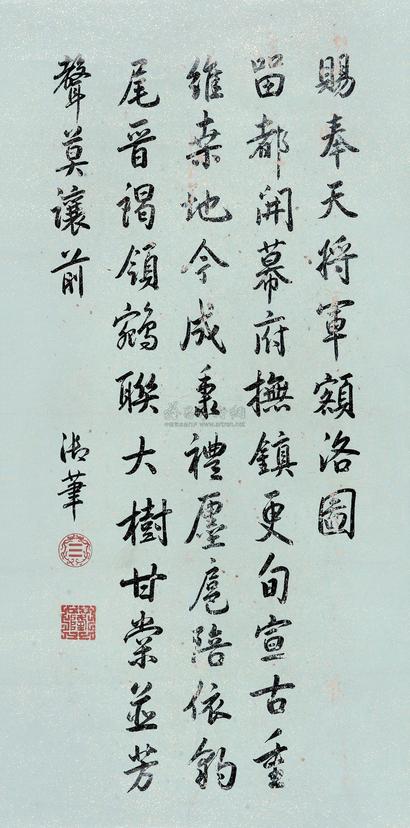 賜奉天将軍額洛圖
畱都開幕府撫鎮更旬宣古重
維桒地今成秉禮廛扈陪依豹
尾晋謁領鵷聯大樹甘棠並芳
聲莫讓前
御筆